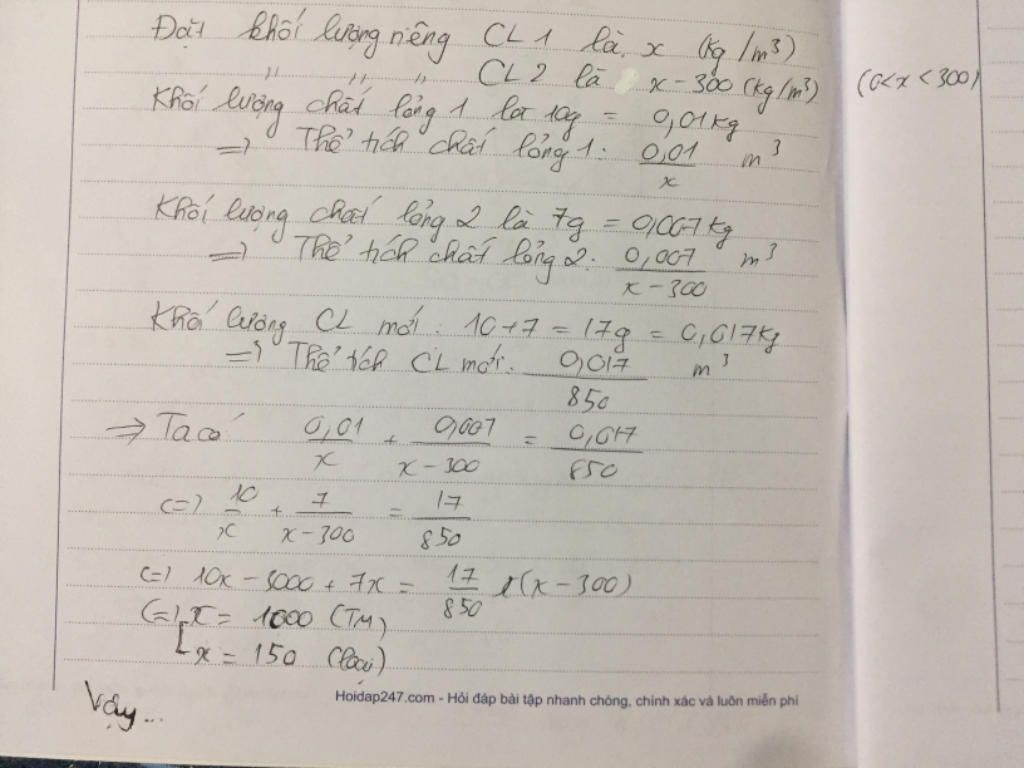 Đặt khối lượng riêng CL 1 là x (kg/m³)
" " " CL2 là x - 300 (kg/m³) (0 < x < 300)
Khối lượng chất lỏng 1 là 10g = 0,01kg
=> Thể tích chất lỏng 1: 0,01/x m³
Khối lượng chất lỏng 2 là 7g = 0,007kg
=> Thể tích chất lỏng 2: 0,007/(x - 300) m³
Khối lượng CL mới: 10 + 7 = 17g = 0,017kg
=> Thể tích CL mới: 0,017/850 m³
=> Ta có 0,01/x + 0,007/(x - 300) = 0,017/850
<=> 10/x + 7/(x - 300) = 17/850
<=> 10x - 3000 + 7x = 17/850 x(x - 300)
<=> [x = 1000 (TM)
x = 150 (loại)
Vậy...
Hoidap247.com - Hỏi đáp bài tập nhanh chóng, chính xác và luôn miễn phí